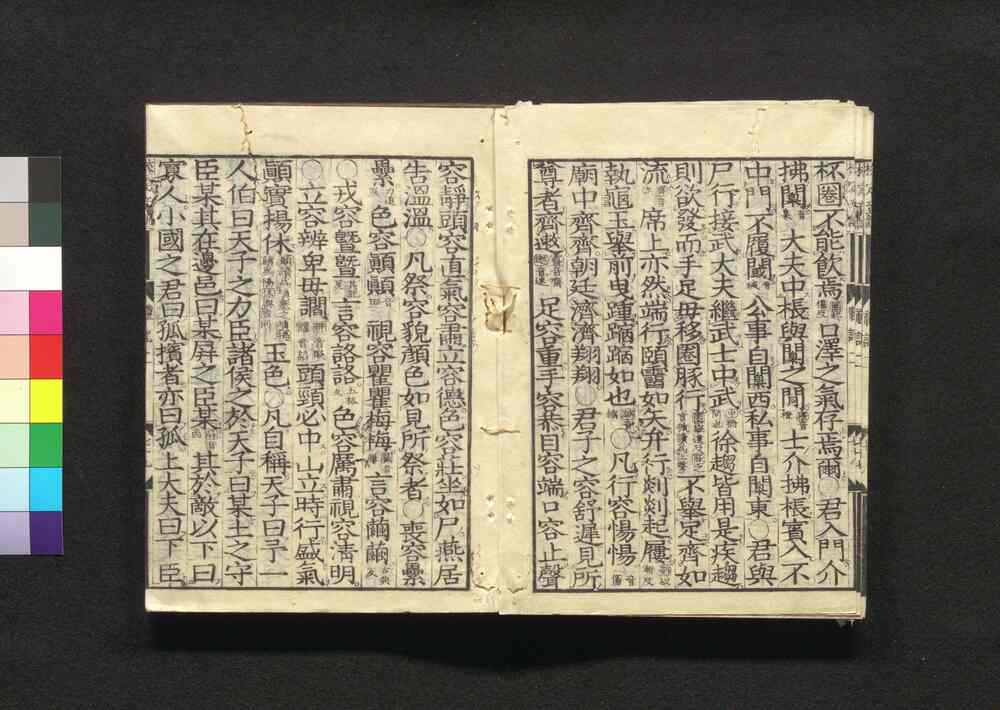 杯圈不能飮焉口澤之氣存焉爾○君入門介
拂闑大夫中棖與闑之閒士介拂棖賓入不
中門不履閾公事自闑西私事自闑東○君與
尸行接武大夫繼武士中武徐趨皆用是疾趨
則欲發而手足毋移圈豚行不舉足齊如
流席上亦然端行頤霤如矢弁行剡剡起屨
執龜玉舉前曳踵蹜蹜如也○凡行容愓愓
廟中齊齊朝廷濟濟翔翔○君子之容舒遲見所
尊者齊遬足容重手容恭目容端口容止聲
容靜頭容直氣容肅立容德色容莊坐如尸燕居
吿溫溫○凡祭容貌顏色如見所祭者○喪容纍
纍色容顚顚視容瞿瞿梅梅言容繭繭
○戎容曁曁言容詻詻色容厲肅視容淸明
○立容辨卑毋讇頭頸必中山立時行盛氣
顚實揚休玉色○凡自稱天子曰予一
人伯曰天子之力臣諸侯之於天子曰某土之守
臣某其在邊邑曰某屛之臣某其於敵以下曰
寡人小國之君曰孤擯者亦曰孤上大夫曰下臣